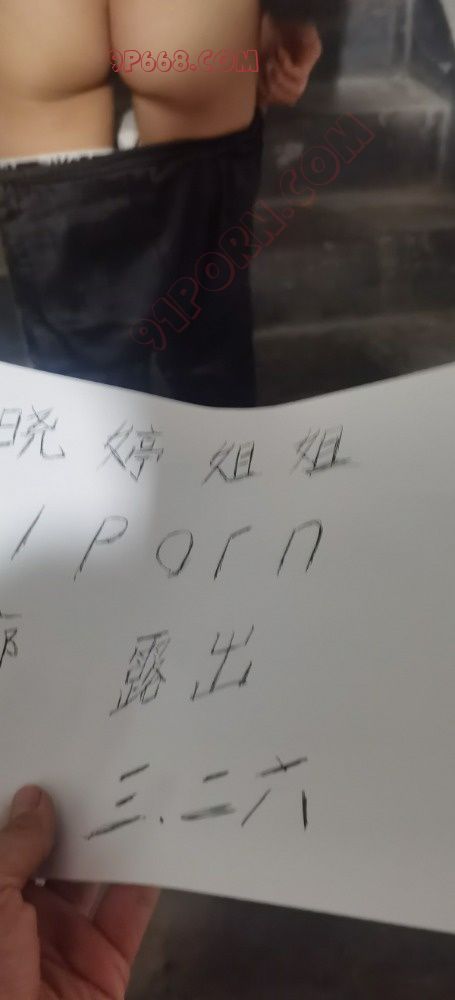 9P668.COM
91PORN.COM
晓婷姐姐
1Porn
露出
三.二六